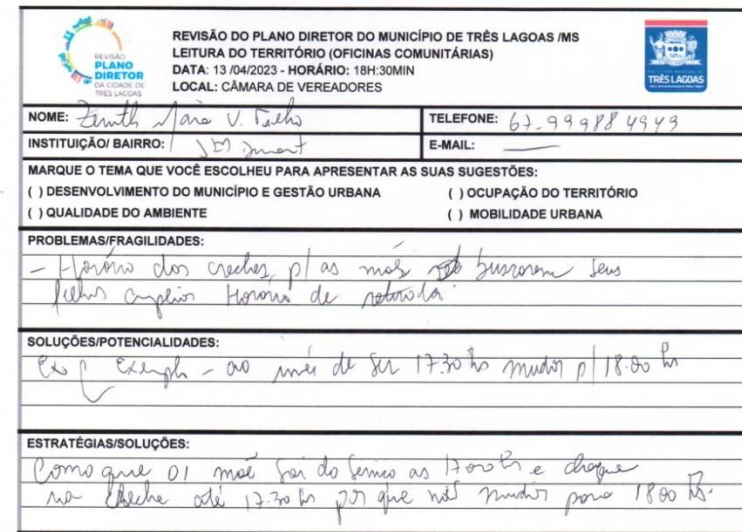 REVISÃO
PLANO
DIRETOR
DA CIDADE DE
TRÊS LAGOAS
REVISÃO DO PLANO DIRETOR DO MUNICÍPIO DE TRÊS LAGOAS /MS
LEITURA DO TERRITÓRIO (OFICINAS COMUNITÁRIAS)
DATA: 13 /04/2023 - HORÁRIO: 18H:30MIN
LOCAL: CÂMARA DE VEREADORES
TRÊS LAGOAS
NOME: Zenith Maria V. TELEFONE: 67-999884949
INSTITUIÇÃO/ BAIRRO: E-MAIL: ——
MARQUE O TEMA QUE VOCÊ ESCOLHEU PARA APRESENTAR AS SUAS SUGESTÕES:
( ) DESENVOLVIMENTO DO MUNICÍPIO E GESTÃO URBANA ( ) OCUPAÇÃO DO TERRITÓRIO
( ) QUALIDADE DO AMBIENTE ( ) MOBILIDADE URBANA
PROBLEMAS/FRAGILIDADES:
- Horário das creches, p/ as mães buscarem seus
filhos ampliar Horário de retirada.
SOLUÇÕES/POTENCIALIDADES:
Exemplo - ao invés de ser 17:30 hs mudar p/ 18:00 hs
ESTRATÉGIAS/SOLUÇÕES:
Como que 01 mãe sai do serviço as 17:00 hs e chegue
na creche até 17:30 hs por que não mudar para 18:00 hs.